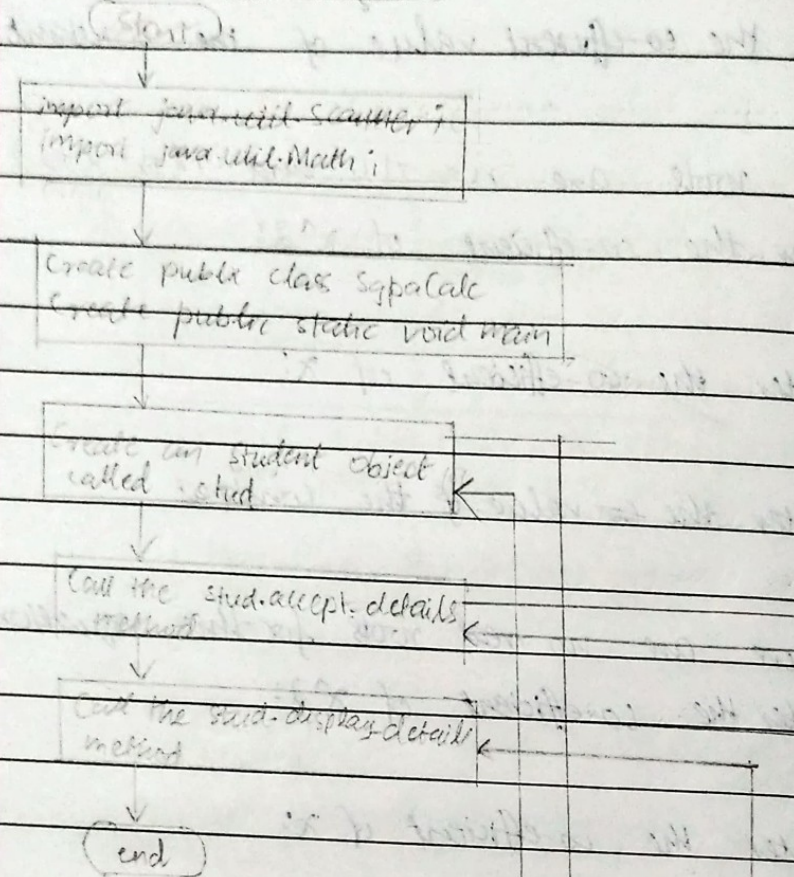 Start
import java.util.Scanner;
import java.util.Math;
Create public class SgpaCalc
Create public static void main
Create an student object
called stud
Call the stud.accept.details
method
Call the stud.display-details
method
end